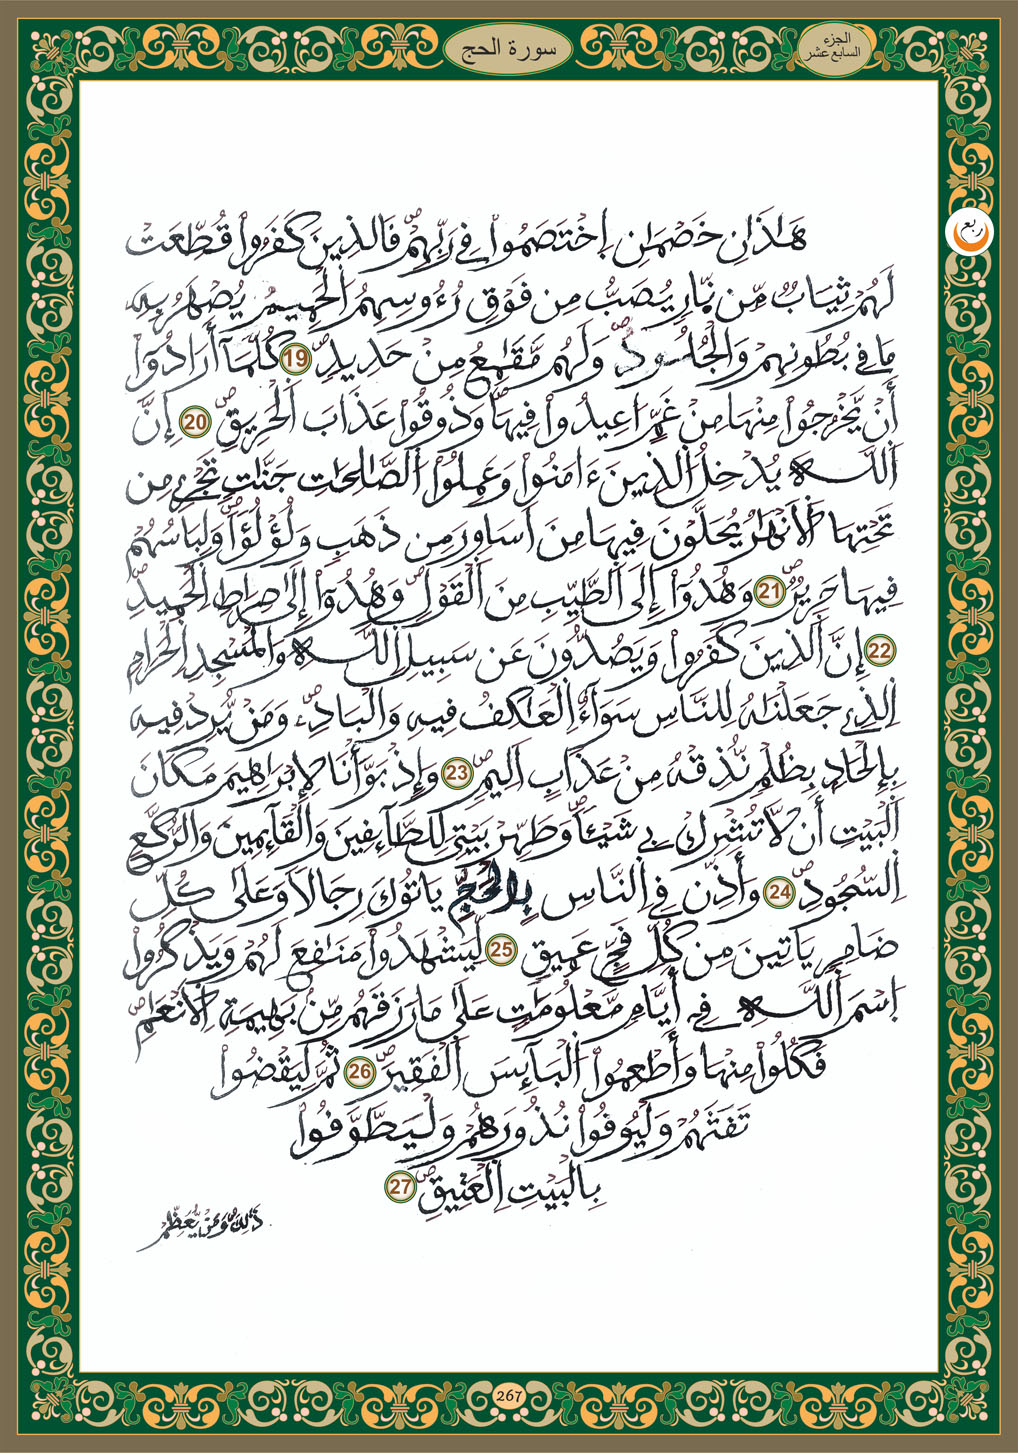 سورة الحج
الجزء
السابع عشر
ربع
هَٰذَانِ خَصْمَٰنِ اِخْتَصَمُواْ فِي رَبِّهِمْ فَالذِينَ كَفَرُواْ قُطِّعَتْ
لَهُمْ ثِيَابٌ مِّن نّارٍ يُصَبُّ مِن فَوْقِ رُءُوسِهِمُ الْحَمِيمُ يُصْهَرُ بِهِ
مَا فِي بُطُونِهِمْ وَالْجُلُودُ وَلَهُم مَّقَٰمِعُ مِنْ حَدِيدٍ 19 كُلَّمَآ أَرَادُوٓاْ
أَنْ يَّخْرُجُواْ مِنْهَا مِنْ غَمٍّ اعِيدُواْ فِيهَا وَذُوقُواْ عَذَابَ الْحَرِيقِ 20 إِنَّ
اَللَّهَ يُدْخِلُ الذِينَ ءَامَنُواْ وَعَمِلُواْ الصَّٰلِحَٰتِ جَنَّٰتٍ تَجْرِي مِن
تَحْتِهَا اَلَانْهَٰرُ يُحَلَّوْنَ فِيهَا مِنَ اَسَاوِرَ مِن ذَهَبٍ وَلُؤْلُؤاً وَلِبَاسُهُمْ
فِيهَا حَرِيرٌ 21 وَهُدُوٓاْ إِلَى اَلطَّيِّبِ مِنَ اَلْقَوْلِ وَهُدُوٓاْ إِلَىٰ صِرَٰطِ اِلْحَمِيدِ
22 إِنَّ اَلذِينَ كَفَرُواْ وَيَصُدُّونَ عَن سَبِيلِ اِللَّهِ وَالْمَسْجِدِ اِلْحَرَامِ
اِلذِي جَعَلْنَٰهُ لِلنَّاسِ سَوَآءٌ اَلْعَٰكِفُ فِيهِ وَالْبَادِۦ وَمَنْ يُّرِدْ فِيهِ
بِإِلْحَادٍ بِظُلْمٍ نُّذِقْهُ مِنْ عَذَابٍ اَلِيمٍ 23 وَإِذْ بَوَّأْنَا لِإِبْرَاهِيمَ مَكَانَ
اَلْبَيْتِ أَن لَّا تُشْرِكْ بِي شَيْـٔاً وَطَهِّرْ بَيْتِيَ لِلطَّآئِفِينَ وَالْقَآئِمِينَ وَالرُّكَّعِ
اِلسُّجُودِ 24 وَأَذِّن فِي اِلنَّاسِ بِالْحَجِّ يَاتُوكَ رِجَالاً وَعَلَىٰ كُلِّ
ضَامِرٍ يَاتِينَ مِن كُلِّ فَجٍّ عَمِيقٍ 25 لِّيَشْهَدُواْ مَنَٰفِعَ لَهُمْ وَيَذْكُرُواْ
اِسْمَ اَللَّهِ فِي أَيَّامٍ مَّعْلُومَٰتٍ عَلَىٰ مَا رَزَقَهُم مِّنۢ بَهِيمَةِ اِلَانْعَٰمِ
فَكُلُواْ مِنْهَا وَأَطْعِمُواْ اَلْبَآئِسَ اَلْفَقِيرَ 26 ثُمَّ لِيَقْضُواْ
تَفَثَهُمْ وَلْيُوفُواْ نُذُورَهُمْ وَلْيَطَّوَّفُواْ
بِالْبَيْتِ اِلْعَتِيقِ 27
ذَٰلِكَ وَمَنْ يُّعَظِّمْ
267